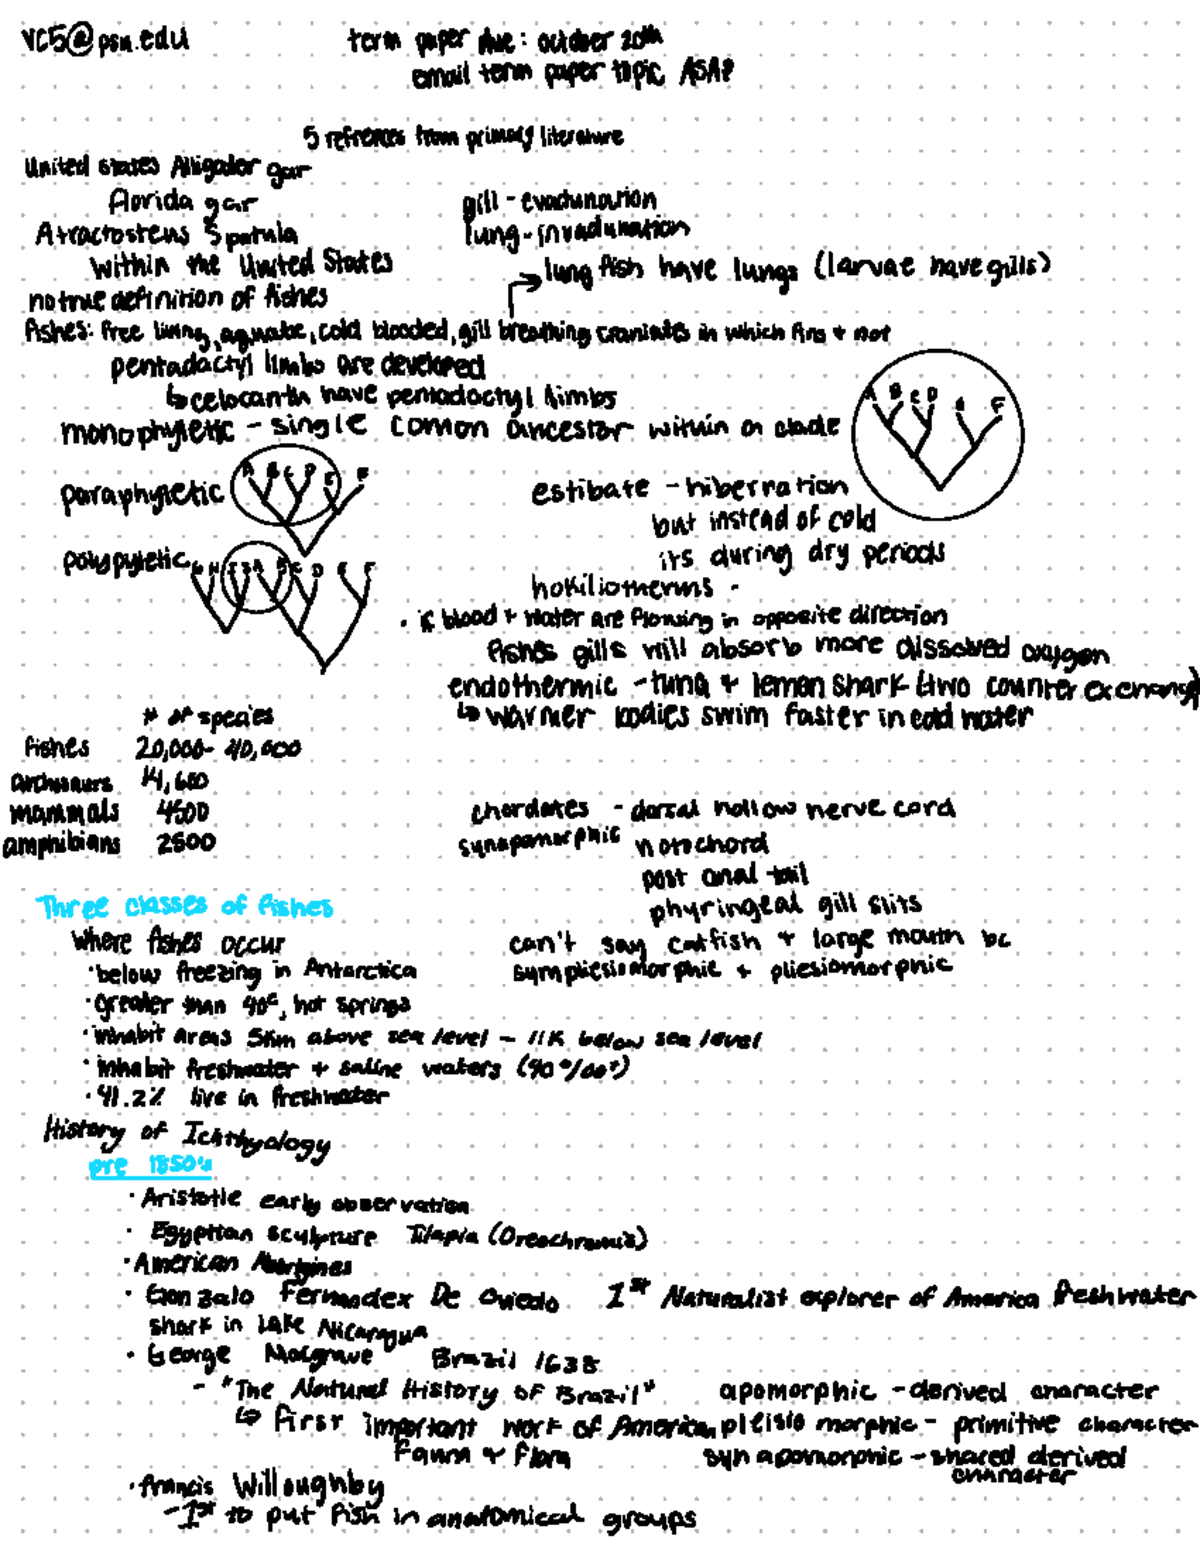 VC5@psu.edu
term paper due: october 20th
email term paper topic ASAP
5 refrences from primary literature
United States Alligator gar
florida gar
Atractosteus Spatula
within the United States
gill - evadunation
lung - invadunation
lung fish have lungs (larvae have gills)
no true definition of fishes
fishes: free living, aquatic, cold blooded, gill breathing craniates in which fins + not
pentadactyl limbs are developed
↳ celocanth have pentadactyl limbs
monophyletic - single comon ancestor within a clade
A B C D E F
paraphyletic
A B C D E F
estibate - hibernation
but instead of cold
its during dry periods
polypyletic
G H I J A B C D E F
hokiliotherms -
· if blood + water are flowing in opposite direction
fishes gills will absorb more dissolved oxygen
endothermic - tuna + lemon shark (two counter exchange)
↳ warmer bodies swim faster in cold water
# of species
fishes 20,000 - 40,000
archosaurs 14,600
mammals 4500
amphibians 2500
chordates - dorsal hollow nerve cord
synapomorphic notochord
post anal tail
phyringeal gill slits
can't say catfish + large mouth bc
sympliesiomorphic + pliesiomorphic
Three classes of fishes
Where fishes occur
· below freezing in Antarctica
· greater than 40°, hot springs
· inhabit areas 5km above sea level - 11K below sea level
· inhabit freshwater + saline waters
· 41.2% live in freshwater
History of Ichthyology
pre 1850s
· Aristotle early observation
· Egyptian sculpture Tilapia (Oreochromis)
· American Aborigines
· Gonzalo Fernandex De Oviedo 1st Naturalist explorer of America freshwater
shark in Lake Nicaragua
· George Brazil 1638
- "The Natural History of Brazil"
↳ first important work of American
Fauna + Flora
apomorphic - derived character
pleisiomorphic - primitive character
synapomorphic - shared derived
character
· Francis Willoughby
- 1st to put fish in anatomical groups